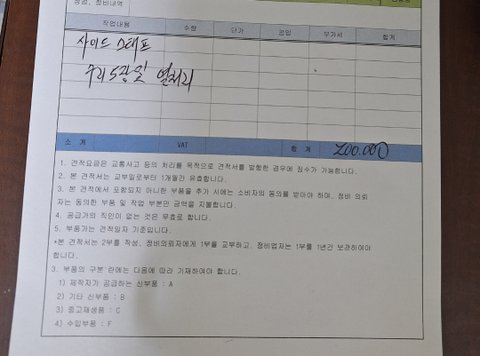 점검, 정비내역
작업내용 수량 단가 공임 부가세 합계
사이드 스태프
소 계 VAT 합 계 200.000
1. 견적요금은 교통사고 등의 처리를 목적으로 견적서를 발행한 경우에 징수가 가능합니다.
2. 본 견적서는 교부일로부터 1개월간 유효합니다.
3. 본 견적에서 포함되지 아니한 부품을 추가 시에는 소비자의 동의를 받아야 하며, 정비 의뢰
자는 동의한 부품 및 작업 부분만 금액을 지불합니다.
4. 공급가의 직인이 없는 것은 무효로 합니다.
5. 부품가는 견적일자 기준입니다.
*본 견적서는 2부를 작성, 정비의뢰자에게 1부를 교부하고, 정비업자는 1부를 1년간 보관하여야
합니다.
3. 부품의 구분 란에는 다음에 따라 기재하여야 합니다.
1) 제작자가 공급하는 신부품 : A
2) 기타 신부품 : B
3) 중고재생품 : C
4) 수입부품 : F